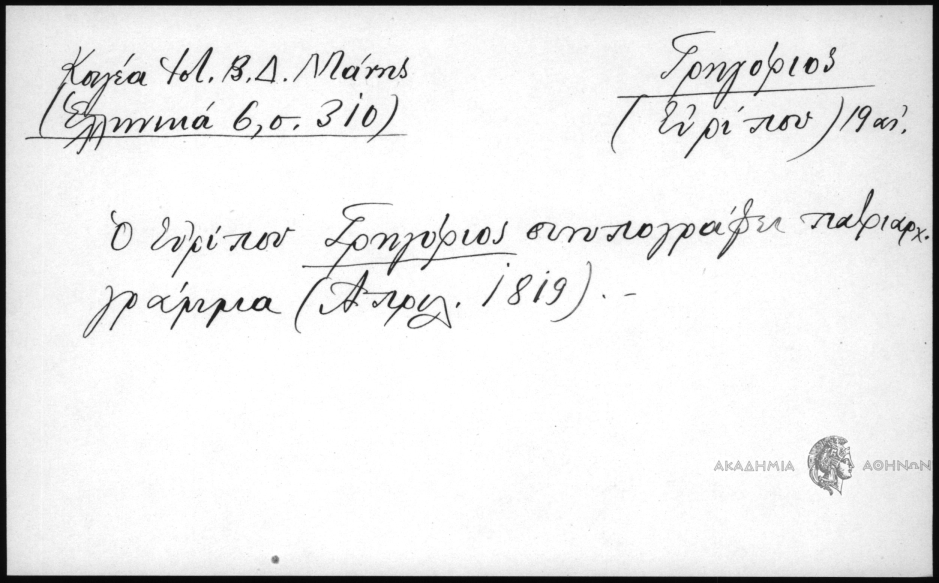 Κουγέα Ἱστ. Β.Δ. Μάνης
(Ἑλληνικά 6, σ. 310)
Γρηγόριος
(Εὐρίπου) 19 αἰ.
Ὁ Εὐρίπου Γρηγόριος συνυπογράφει πατριαρχ.
γράμμα (Ἀπριλ. 1819). –
ΑΚΑΔΗΜΙΑ ΑΘΗΝΩΝ